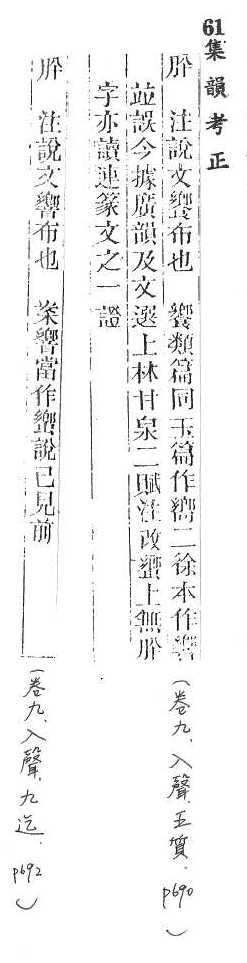 61集韻考正
肸 注說文饗布也 饗類篇同玉篇作嚮二徐本作響
竝誤今據廣韻及文選上林甘泉二賦注改蠁上無肸
字亦讀連篆文之一證
(卷九、入聲、五質、p690)
肸 注說文響布也 案響當作蠁說已見前
(卷九、入聲、九迄、p692)